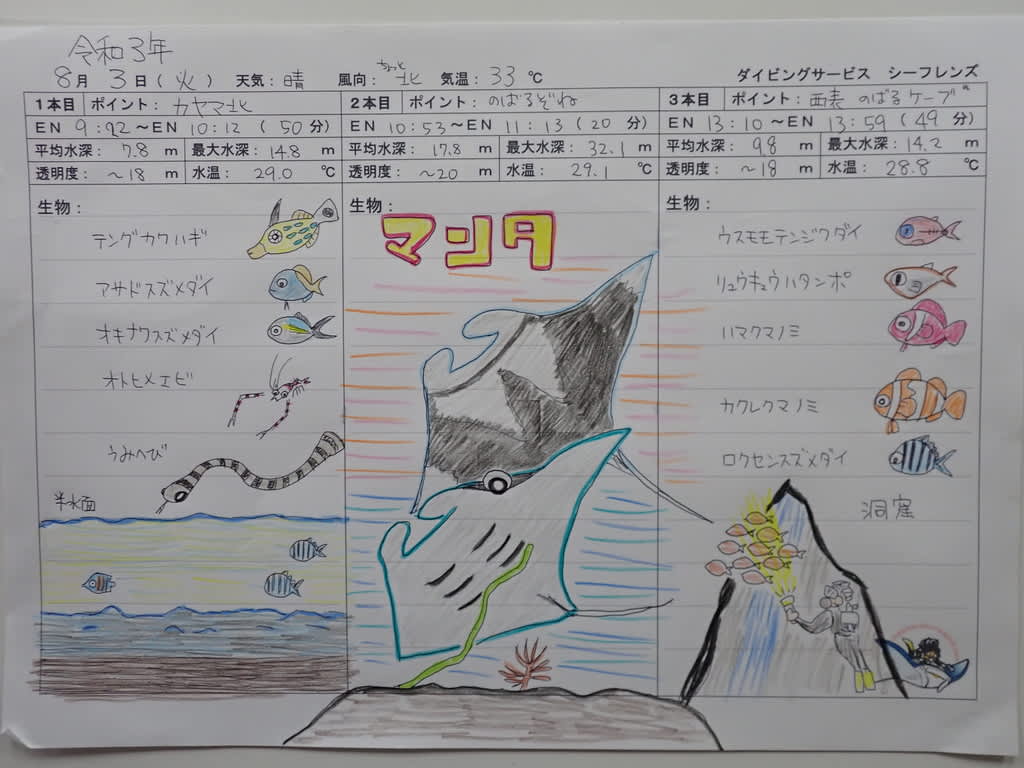 令和3年
8月 3日(火) 天気:晴 風向:ちょっと北 気温:33℃ ダイビングサービス シーフレンズ
1本目 ポイント: カヤマ北
EN 9:22~EN 10:12 (50分)
平均水深: 7.8 m 最大水深:14.8 m
透明度: ~18 m 水温: 29.0 ℃
生物:
テングカワハギ
アサドスズメダイ
オキナワスズメダイ
オトヒメエビ
うみへび
半水面
2本目 ポイント: のばるぞね
EN 10:53~EN 11:13 (20分)
平均水深: 17.8 m 最大水深: 32.1 m
透明度: ~20 m 水温: 29.1 ℃
生物:
マンタ
3本目 ポイント: 西表 のばるケーブ
EN 13:10~EN 13:59 (49分)
平均水深: 9.8 m 最大水深:14.2 m
透明度: ~18 m 水温: 28.8 ℃
生物:
ウスモモテンジクダイ
リュウキュウハタンポ
ハマクマノミ
カクレクマノミ
ロクセンスズメダイ
洞窟